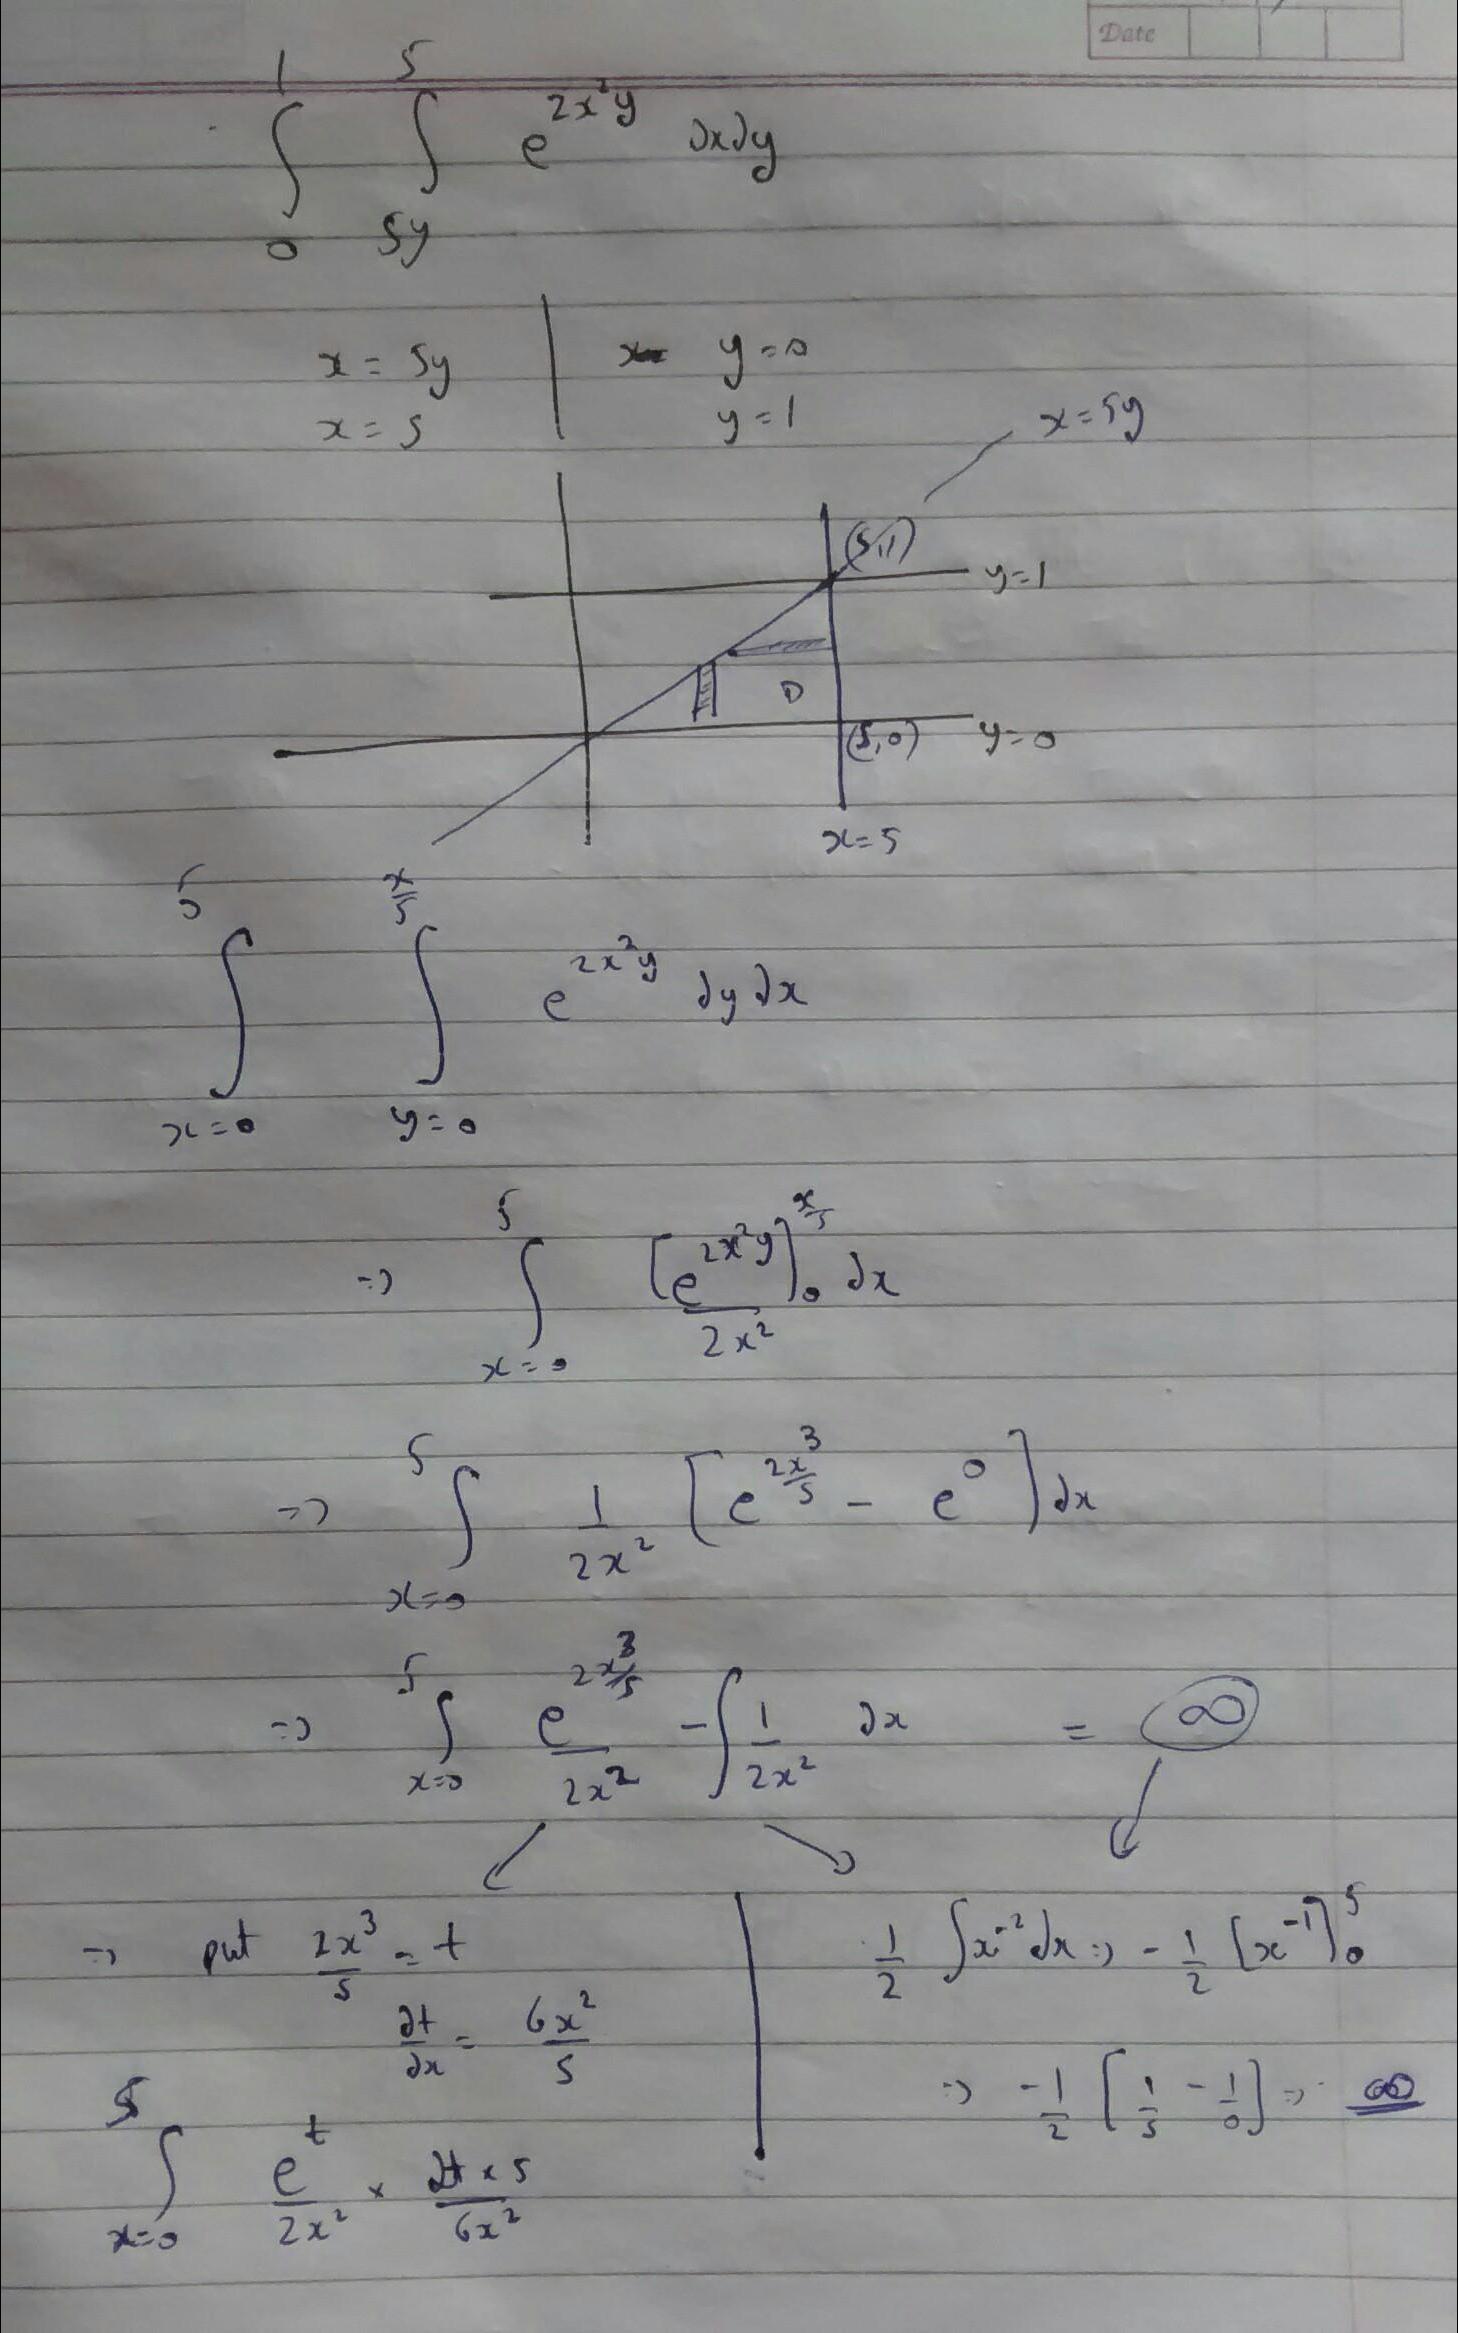 Date
∫_0^1 ∫_{5y}^5 e^{2x²y} ∂x∂y
x = 5y | y = 0
x = 5 | y = 1
x = 5y
(5,1)
y = 1
D
(5,0) y = 0
x = 5
∫_{x=0}^5 ∫_{y=0}^{x/5} e^{2x²y} ∂y∂x
⇒ ∫_{x=0}^5 [e^{2x²y}]_0^{x/5} / 2x² ∂x
⇒ ∫_{x=0}^5 1/2x² [e^{2x³/5} - e^0] ∂x
⇒ ∫_{x=0}^5 e^{2x³/5} / 2x² - ∫ 1/2x² ∂x = ∞
⇒ put 2x³/5 = t
∂t/∂x = 6x²/5
∫_{x=0}^5 e^t / 2x² × ∂t × 5 / 6x²
1/2 ∫ x^{-2} ∂x ⇒ -1/2 [x^{-1}]_0^5
⇒ -1/2 [1/5 - 1/0] ⇒ ∞